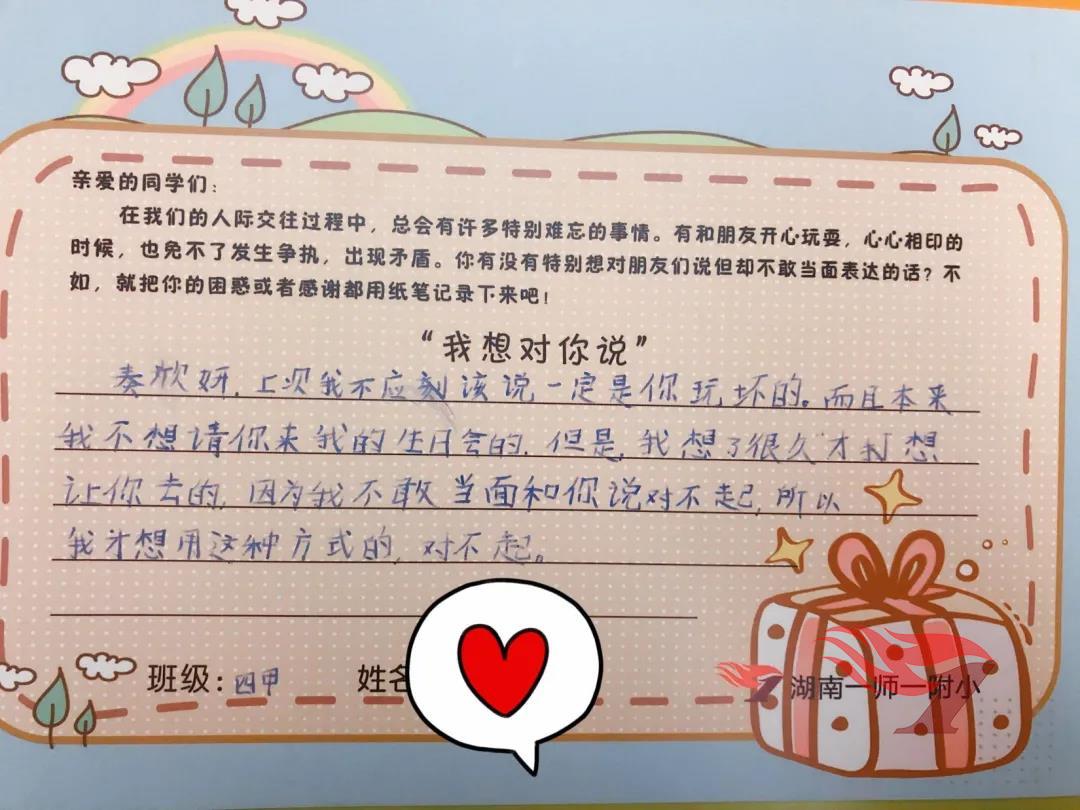 亲爱的同学们：
在我们的人际交往过程中，总会有许多特别难忘的事情。有和朋友开心玩耍，心心相印的
时候，也免不了发生争执，出现矛盾。你有没有特别想对朋友们说但却不敢当面表达的话？不
如，就把你的困惑或者感谢都用纸笔记录下来吧！
“我想对你说”
秦欣妍，上次我不应该说一定是你玩坏的。而且本来
我不想请你来我的生日会的，但是，我想了很久才想
让你去的，因为我不敢当面和你说对不起，所以
我才想用这种方式的，对不起。
班级：四甲 姓名
湖南一师一附小